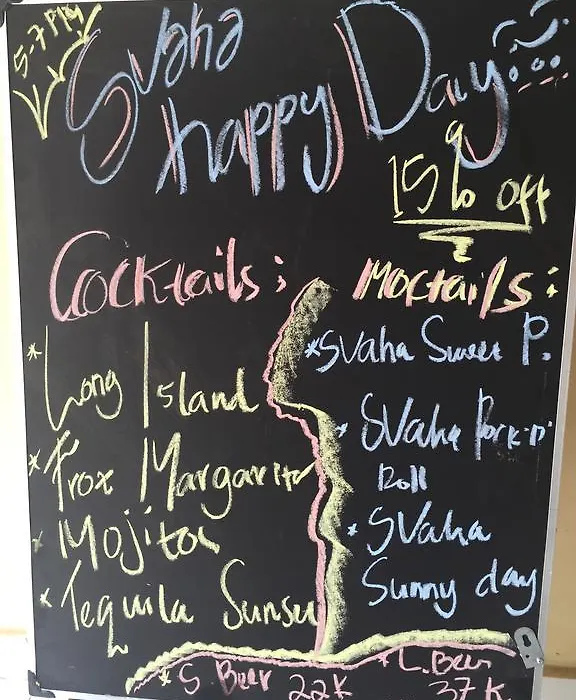 5-7 PM
Svaha
happy Day
15% off
Cocktails:
Moctails:
* Long Island
* Frox Margarita
* Mojitos
* Tequila Sunsu
* Svaha Sweet P.
* Svaha Rock-n'
Roll
* Svaha
Sunny day
* S. Beer 22K
* L. Beer 37K